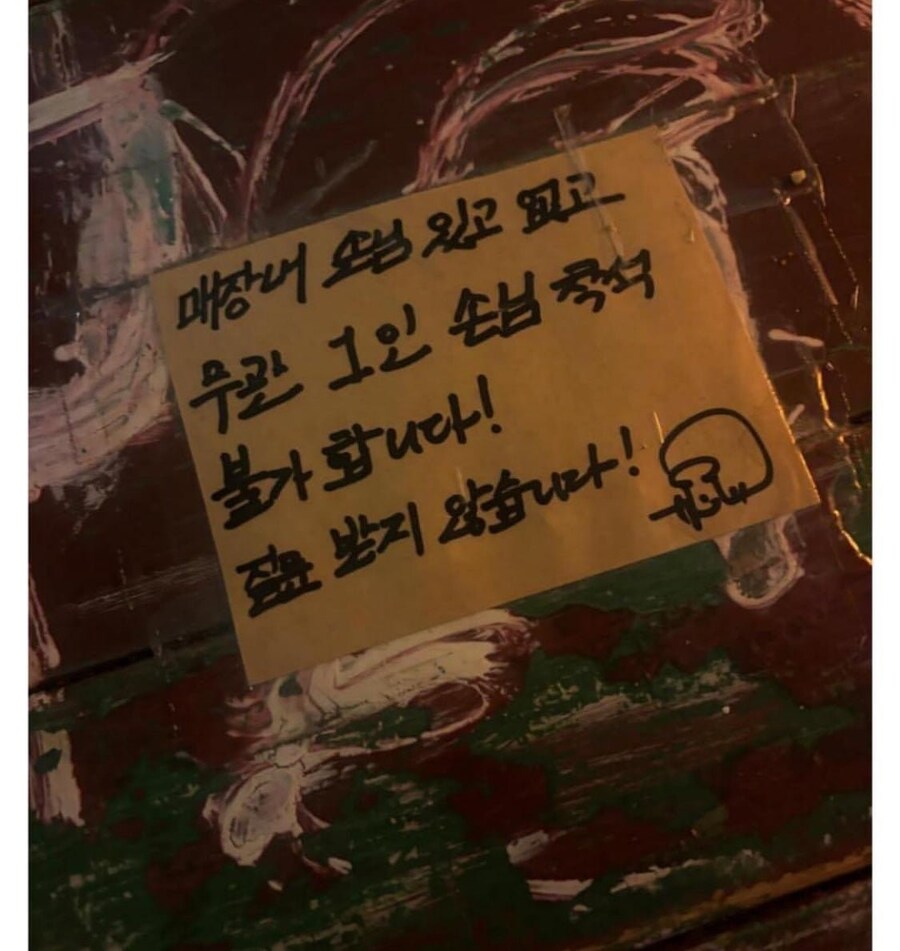 매장내 손님 있고 없고
무관 1인 손님 착석
불가 합니다!
질문 받지 않습니다!